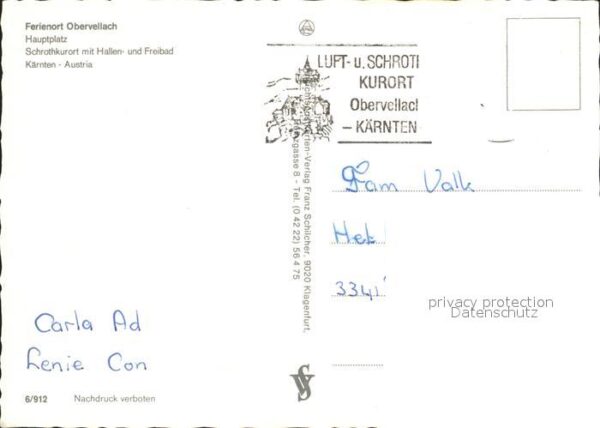 Ferienort Obervellach
Hauptplatz
Schrothkurort mit Hallen- und Freibad
Kärnten - Austria
LUFT- u. SCHROTH
KURORT
Obervellach
– KÄRNTEN
Franz Schilcher, 9020 Klagenfurt,
8 - Tel. (0 42 22) 56 4 75
Fam Valk
Het
3341
privacy protection
Datenschutz
Carla Ad
Lenie Con
6/912 Nachdruck verboten